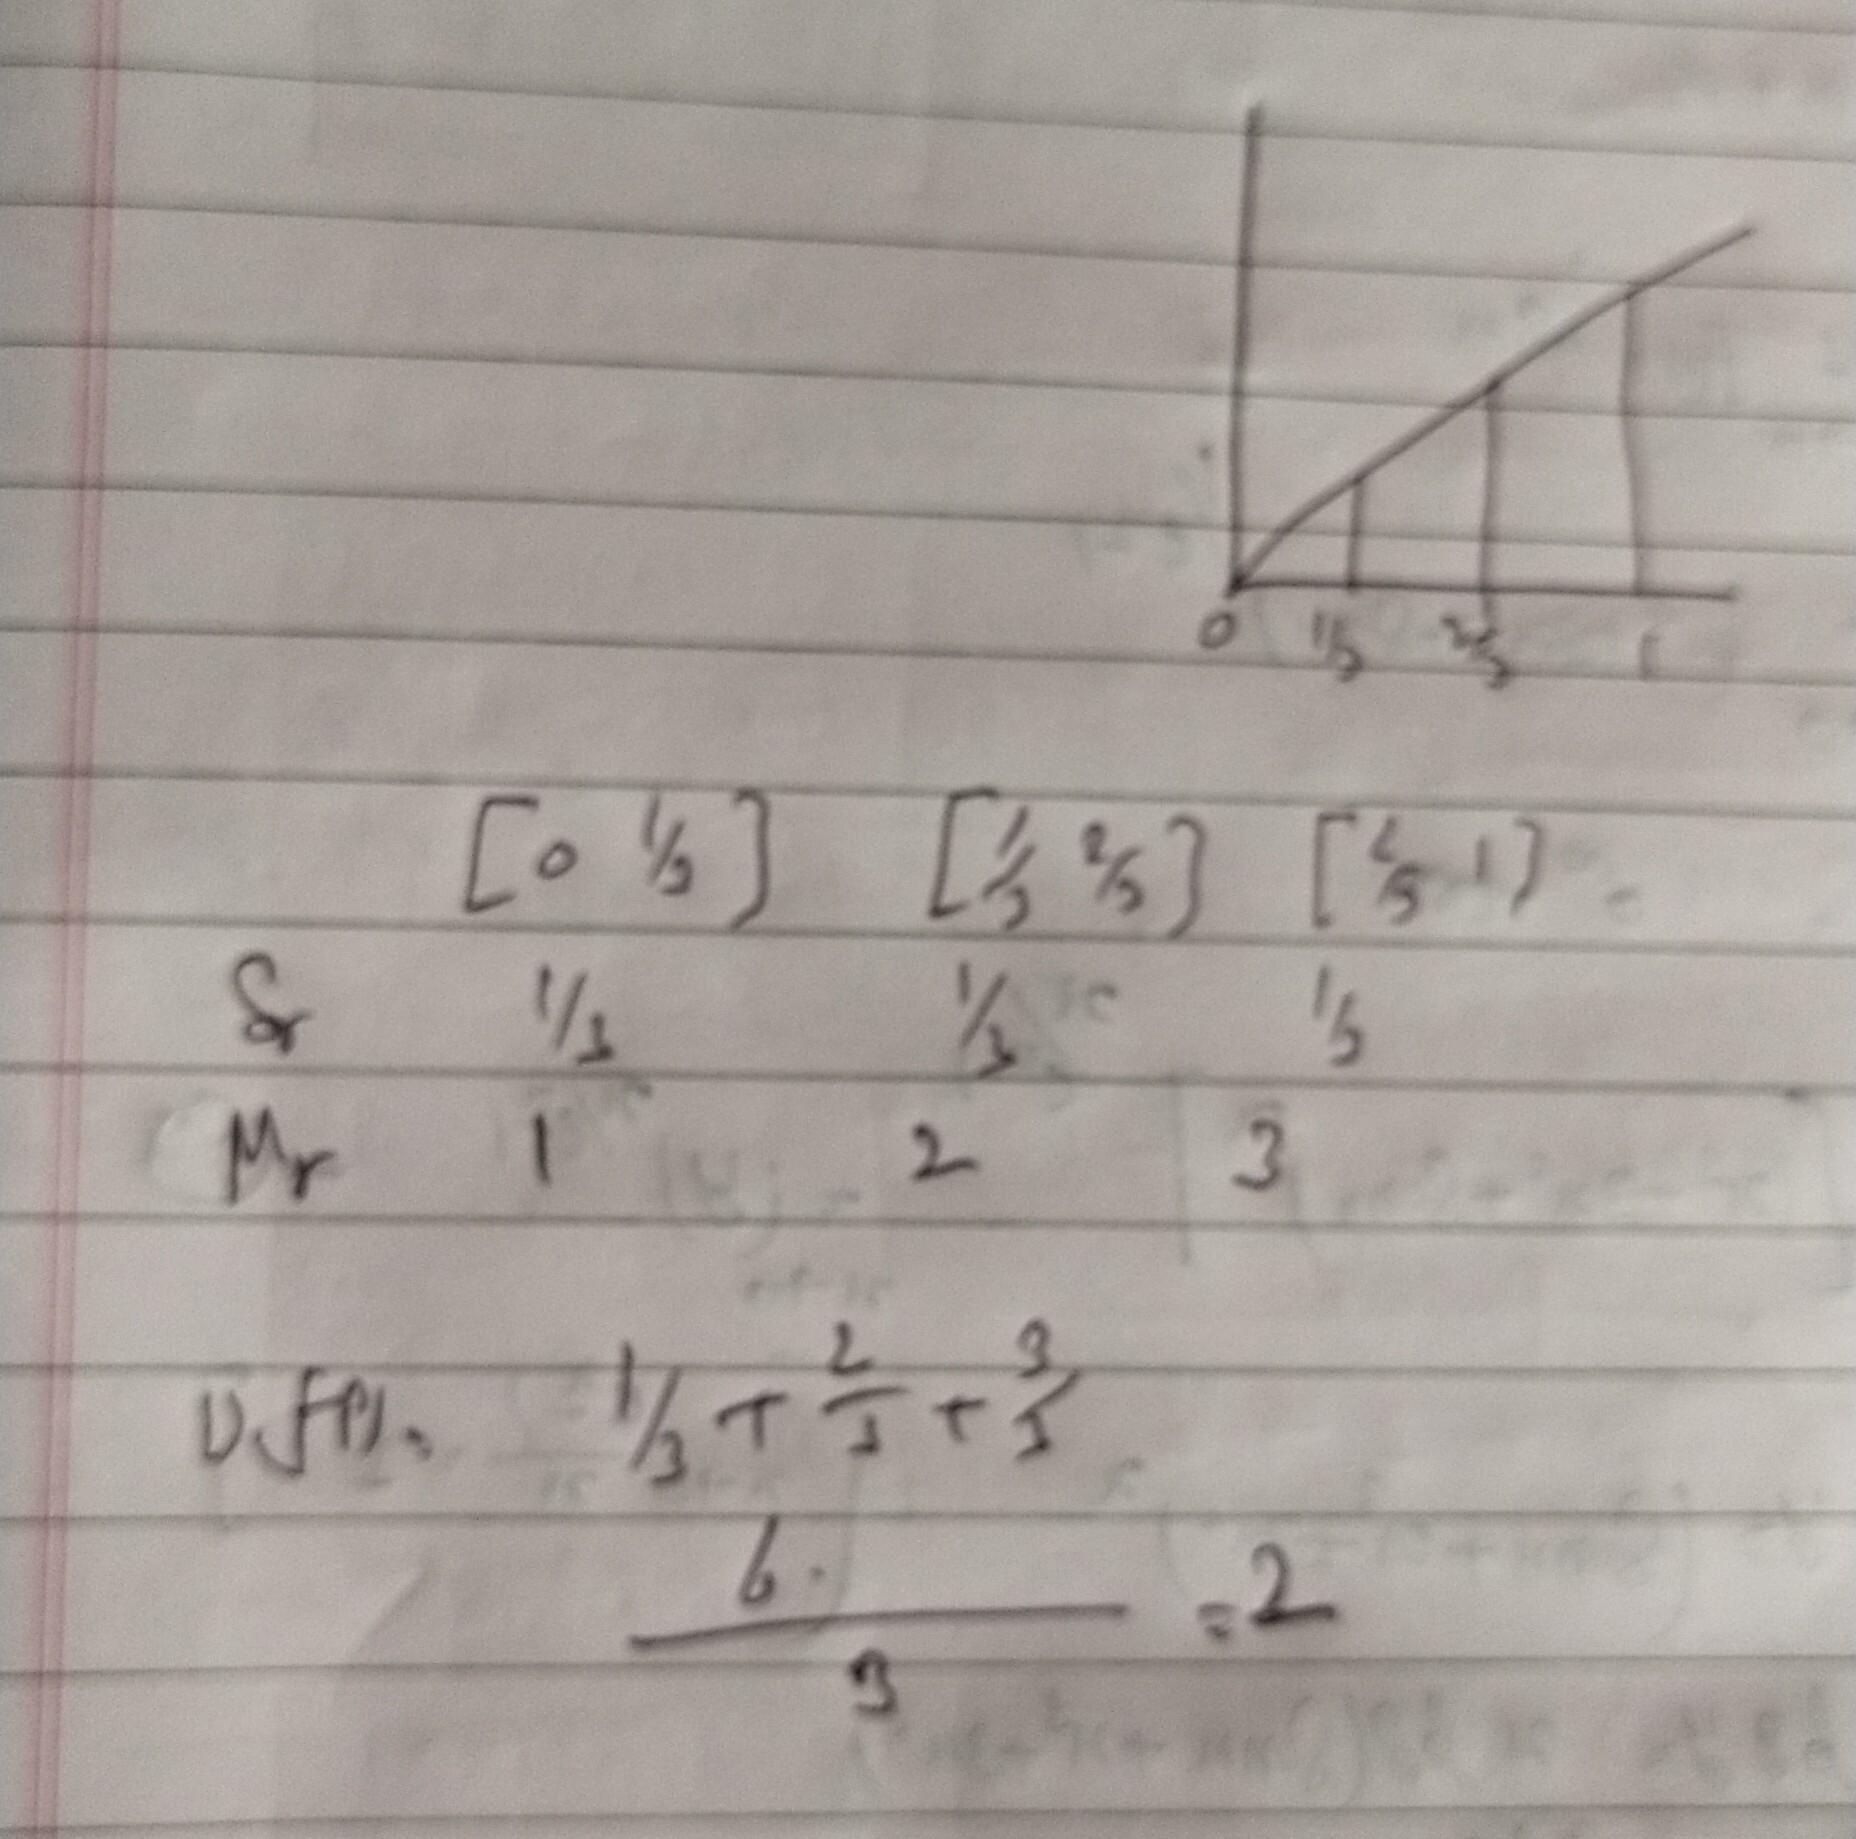 0 1/3 2/3 1
[0 1/3] [1/3 2/3] [2/3 1]
δr 1/3 1/3 1/3
Mr 1 2 3
1/3 + 2/3 + 3/3
6.
3 = 2